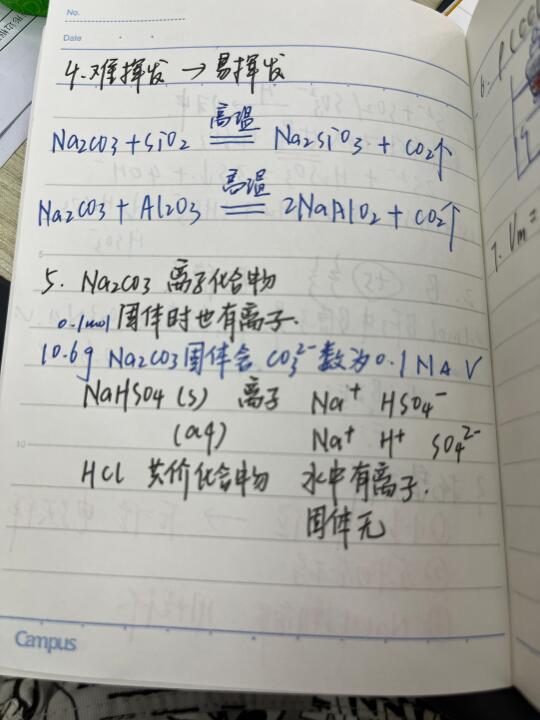 No.
Date
4.难挥发 → 易挥发
Na2CO3 + SiO2 高温 Na2SiO3 + CO2↑
Na2CO3 + Al2O3 高温 2NaAlO2 + CO2↑
5. Na2CO3 离子化合物
0.1mol 固体时也有离子.
10.6g Na2CO3固体含 CO3²⁻数为0.1NA √
NaHSO4 (s) 离子 Na⁺ HSO4⁻
(aq) Na⁺ H⁺ SO4²⁻
HCl 共价化合物 水中有离子.
固体无
Campus
7. Vm =